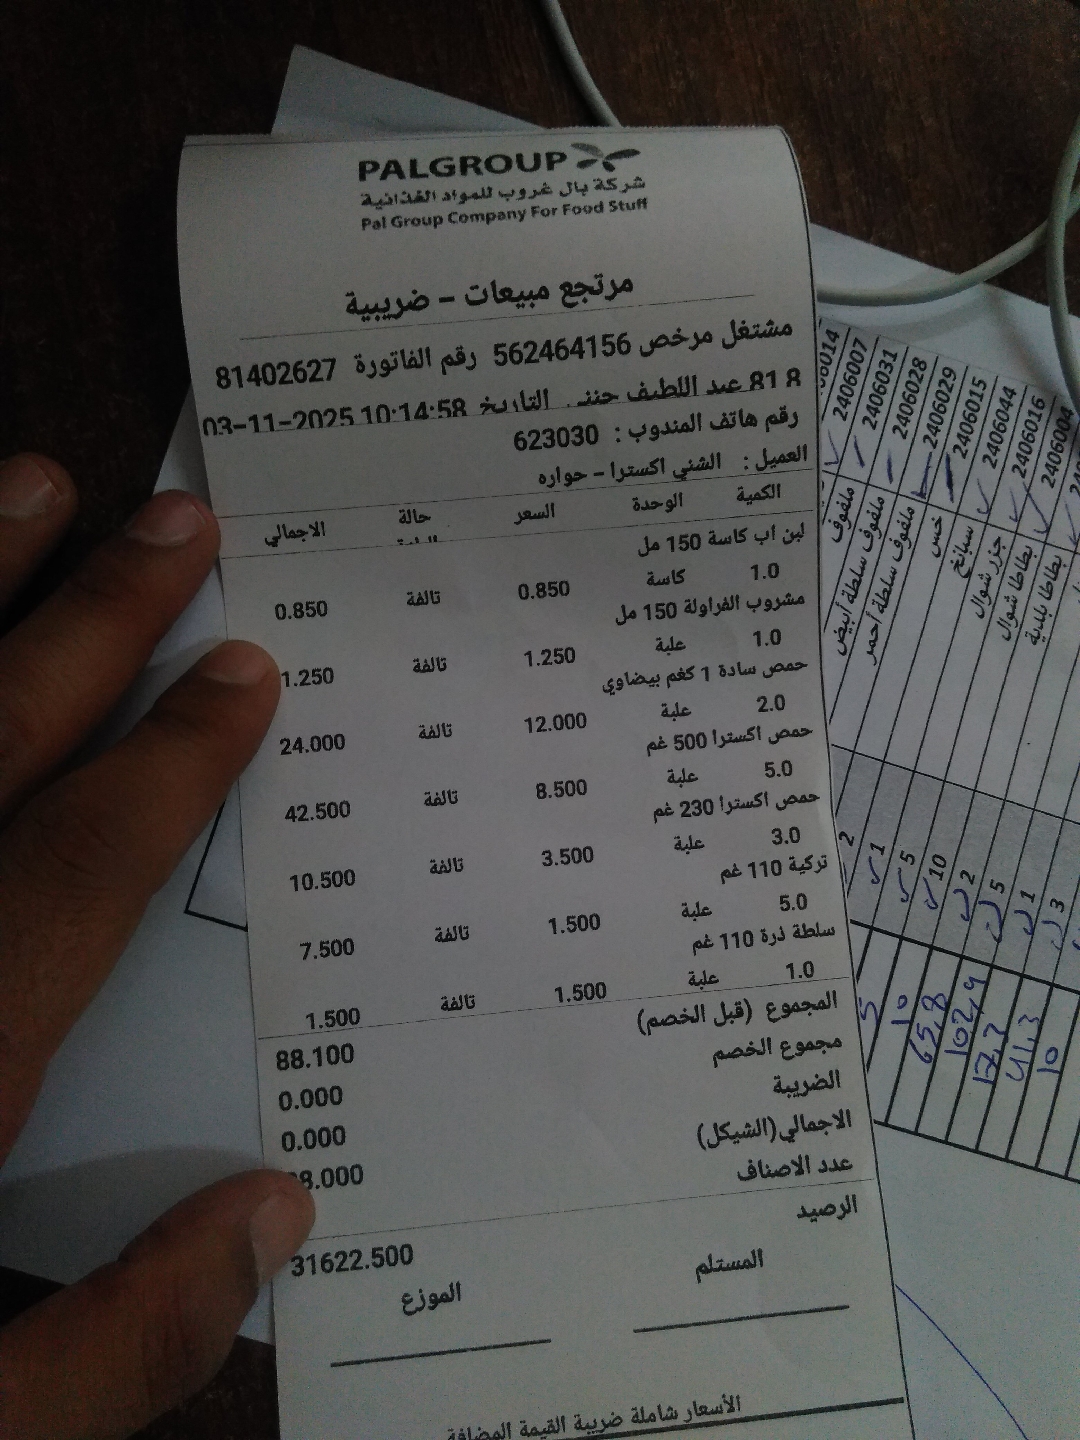 PALGROUP
شركة بال غروب للمواد الغذائية
Pal Group Company For Food Stuff
مرتجع مبيعات - ضريبية
مشتغل مرخص 562464156 رقم الفاتورة 81402627
81 8 عبد اللطيف حنني التاريخ 03-11-2025 10:14:58
رقم هاتف المندوب : 623030
العميل : الشني اكسترا - حواره
الكمية الوحدة السعر حالة الاجمالي
لبن اب كاسة 150 مل
1.0 كاسة 0.850 تالفة 0.850
مشروب الفراولة 150 مل
1.0 علبة 1.250 تالفة 1.250
حمص سادة 1 كغم بيضاوي
2.0 علبة 12.000 تالفة 24.000
حمص اكسترا 500 غم
5.0 علبة 8.500 تالفة 42.500
حمص اكسترا 230 غم
3.0 علبة 3.500 تالفة 10.500
تركية 110 غم
5.0 علبة 1.500 تالفة 7.500
سلطة ذرة 110 غم
1.0 علبة 1.500 تالفة 1.500
المجموع (قبل الخصم) 88.100
مجموع الخصم 0.000
الضريبة 0.000
الاجمالي(الشيكل) 8.000
عدد الاصناف
الرصيد 31622.500
المستلم الموزع
الأسعار شاملة ضريبة القيمة المضافة
6014
2406007 ملفوف 2
2406031 ملفوف سلطة أبيض 1 5
2406028 ملفوف سلطة احمر 5 10
2406029 خس 10 65,8
2406015 سبانخ 2 102,9
2406044 جزر شوال 5 17,3
2406016 بطاطا شوال 1 41,3
2406004 بطاطا بلدية 3 10